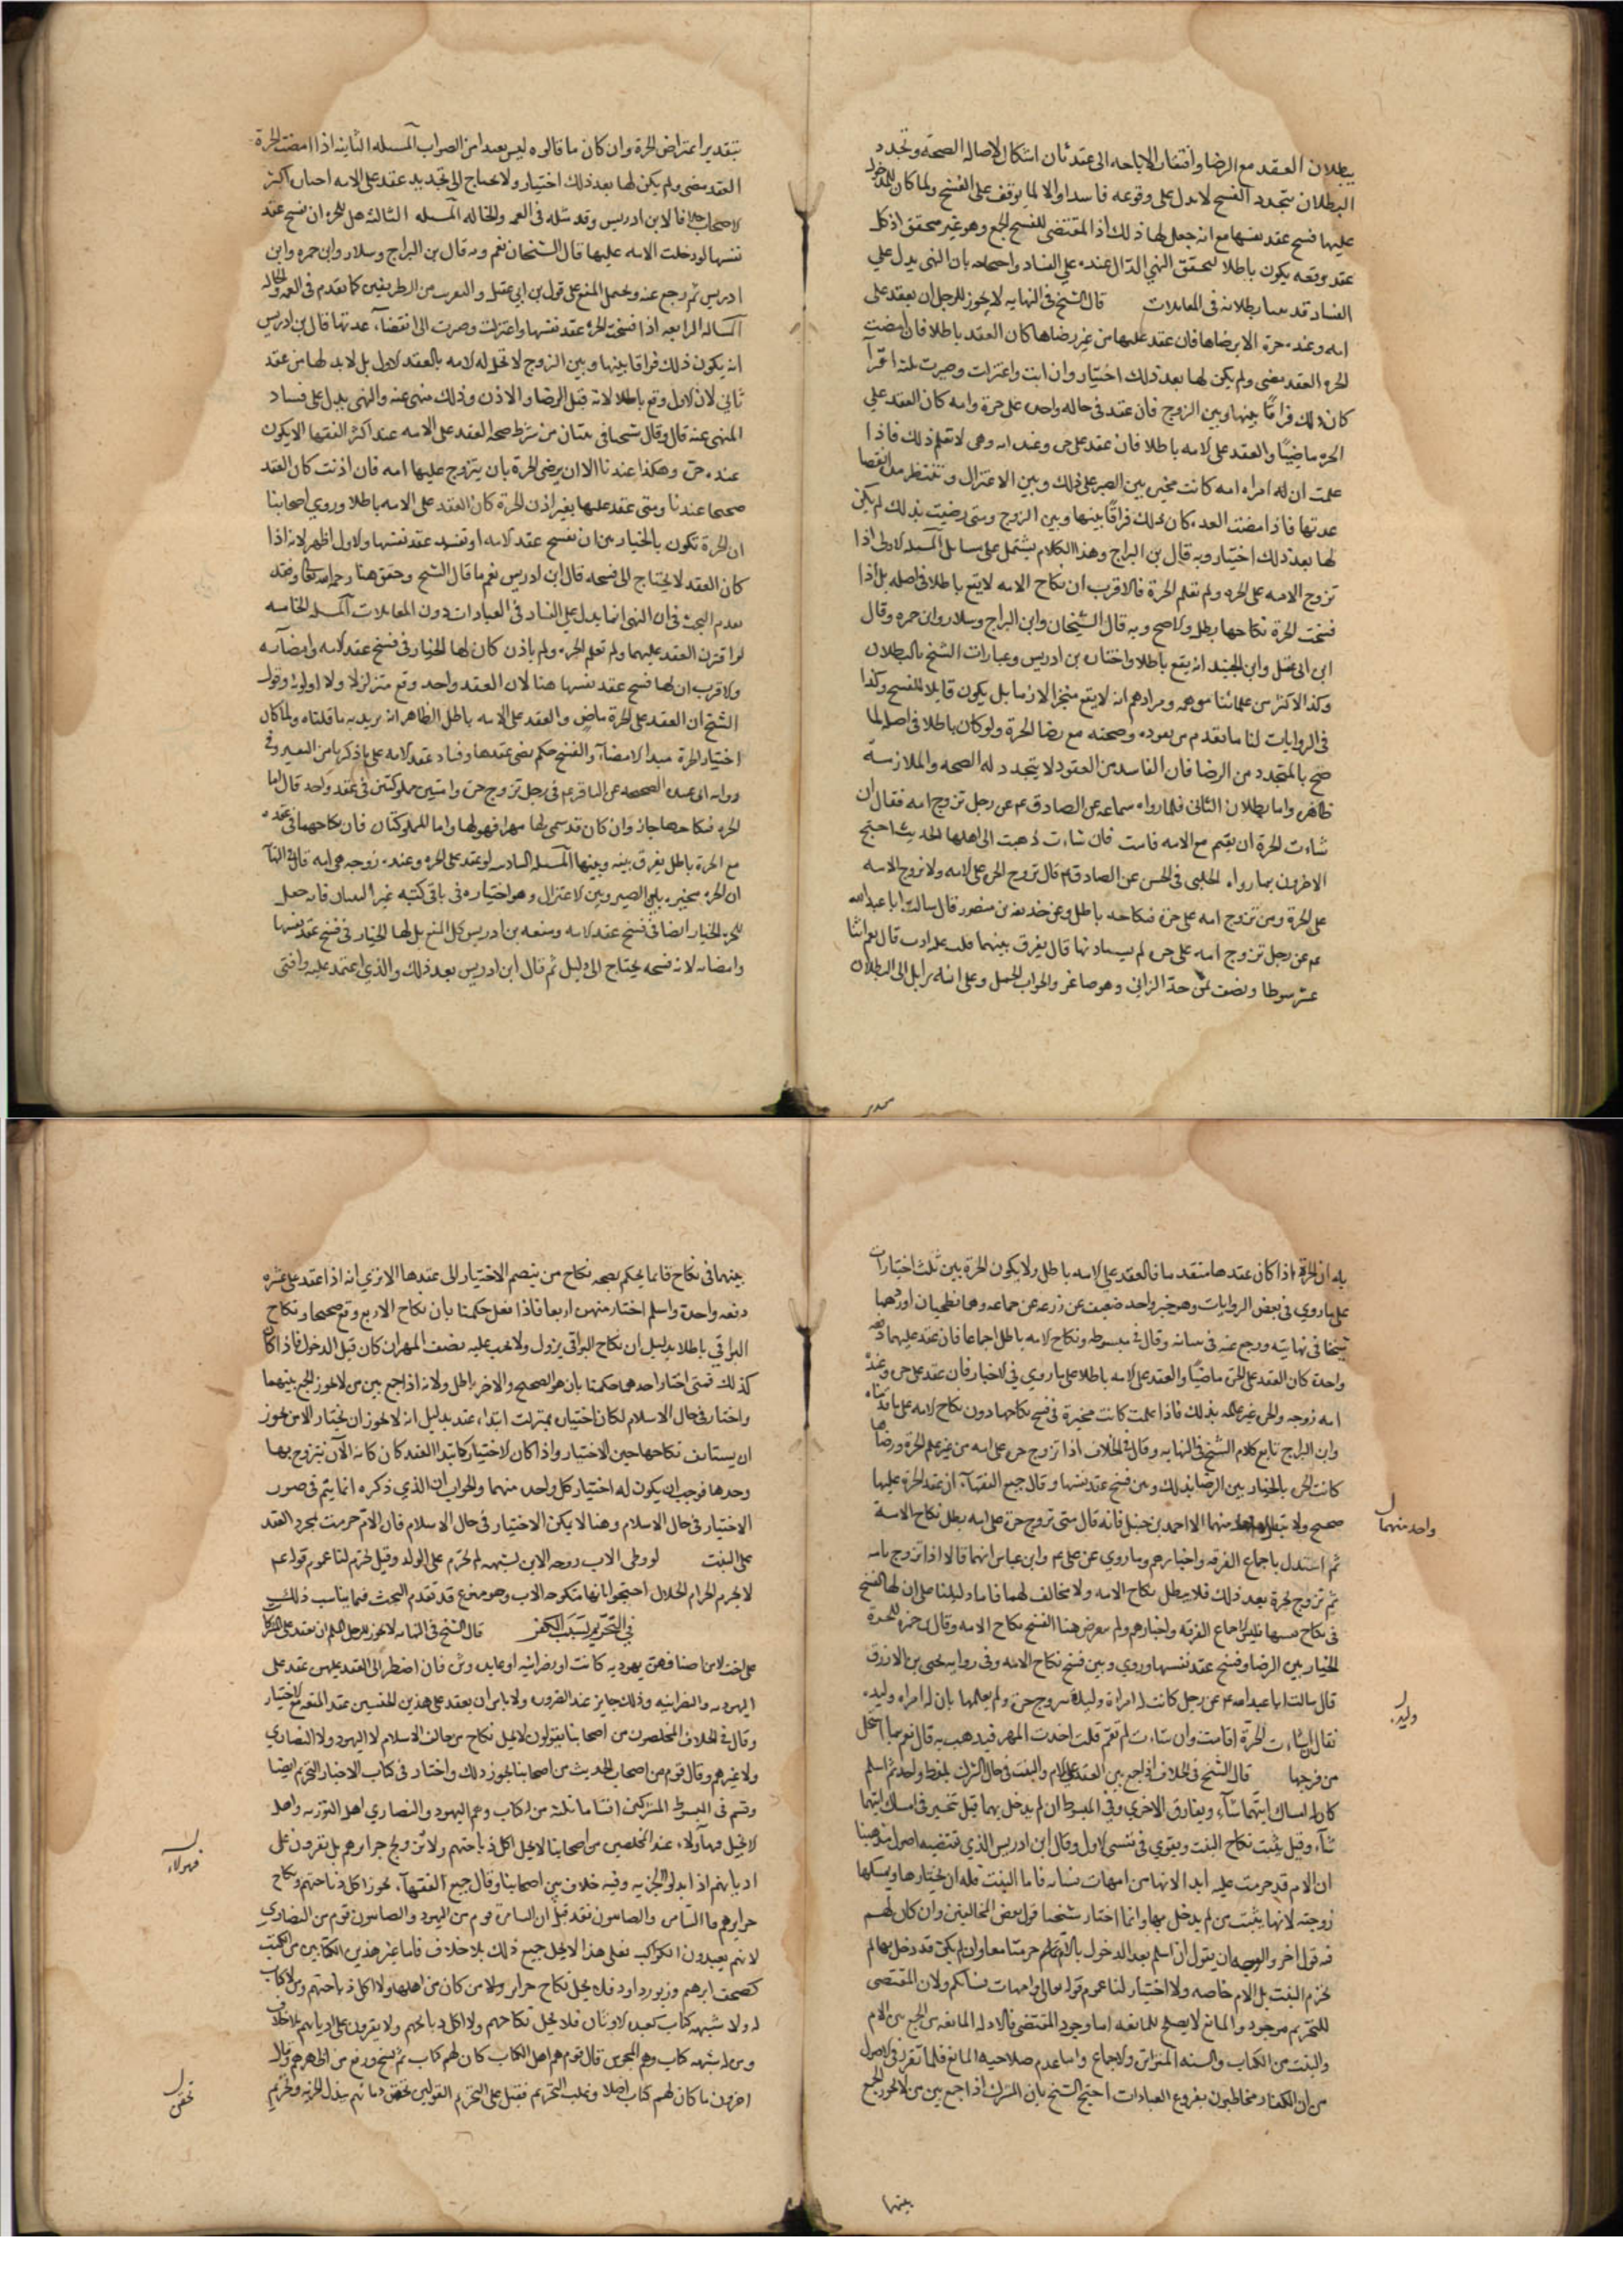 ببطلان العقد مع الرضا وافتقار الاباحه الى عقد ثان اشكال لاصالة الصحة وتجدد
البطلان بتجدد الفسخ لا يدل على وقوعه فاسدا والا لما توقف على الفسخ ولما كان للمدخول
عليها فسخ عقد نفسها مع انه جعل لها ذلك اذ المقتضى للفسخ الجمع وهو غير محقق اذ كل
عقد وقعه يكون باطلا لتحقق النهى الدال عنده على الفساد واحتجاجه بان النهى يدل على
الفساد قد بينا بطلانه فى المعاملات قال الشيخ فى النهايه لا يجوز للرجل ان يعقد على
امه وعنده حرة الا برضاها فان عقد عليها من غير رضاها كان العقد باطلا فان امضت
الحره العقد مضى ولم يكن لها بعد ذلك اختيار وان ابت واعتزلت وصبرت ثلثة اقرآ
كان ذلك فراقًا بينها وبين الزوج فان عقد فى حاله واحده على حرة وامه كان العقد على
الحره ماضيًا والعقد على الامه باطلا فان عقد على حره وعنده امه وهى لا تعلم ذلك فاذا
علمت ان له امراه امه كانت مخيره بين الصبر على ذلك وبين الاعتزال وتنتظر مدة انقضا
عدتها فاذا مضت العده كان ذلك فراقًا بينها وبين الزوج ومتى رضيت بذلك لم يكن
لها بعد ذلك اختيار وبه قال بن البراج وهذا الكلام يشتمل على مسايل المسله الاولى اذا
تزوج الامه على الحره ولم تعلم الحرة فالاقرب ان نكاح الامه لا يقع باطلا فى اصله بل اذا
فسخت الحرة نكاحها بطل والا صح وبه قال الشيخان وابن البراج وسلار وابن حمزه وقال
ابن ابى عقيل وابن الجنيد انه يقع باطلا واختاره بن ادريس وعبارات الشيخ بالبطلان
وكذا الاكثر من علمائنا موهمه ومرادهم انه لا يقع منجزا لازما بل يكون قابلا للفسخ وكذا
فى الروايات لنا ما تقدم من بعوده وصحته مع رضا الحرة ولو كان باطلا فى اصله لما
صح بالمتجدد من الرضا فان الفاسد من العقود لا يتجدد له الصحه والملازمة
ظاهره واما بطلان الثانى فلما رواه سماعه عن الصادق ع م عن رجل تزوج امه فقال ان
شاءت الحرة ان تقيم مع الامه قامت فان شاءت ذهبت الى اهلها الحديث احتج
الاخرون بما رواه الحلبى فى الحسن عن الصادق ع م قال تزوج الحره على الامه ولا تزوج الامه
على الحرة ومن تزوج امه على حرة فنكاحه باطل وعن حذيفه بن منصور قال سالت ابا عبدالله
ع م عن رجل تزوج امه على حره لم يستاذنها قال يفرق بينهما قلت عليه ادب قال نعم اثنا
عشر سوطا ونصف ثمن حد الزانى وهو صاغر والجواب الحمل على انه يرايل الى البطلان
بتقدير اعتراض الحرة وان كان ما قالوه ليس بعيدا من الصواب المسله الثانيه اذا امضت الحرة
العقد مضى ولم يكن لها بعد ذلك اختيار ولا يحتاج الى تجديد عقد على الامه اختاره اكثر
الاصحاب خلافا لابن ادريس وقد مثله فى العمه والخاله المسله الثالثة هل للحره ان تفسخ عقد
نفسها لو دخلت الامه عليها قال الشيخان نعم وبه قال بن البراج وسلار وابن حمزه وابن
ادريس ثم رجع عنه ويحتمل المنع على قول بن ابى عقيل والتقريب من الطريقين كما تقدم فى العمه والخاله
المساله الرابعه اذا فسخت الحرة عقد نفسها واعتزلت وصبرت الى انقضاء عدتها قال بن ادريس
انه يكون ذلك فراقا بينها وبين الزوج لا تحل له الامه بالعقد الاول بل لا بد لها من عقد
ثانى لان الاول وقع باطلا لانه قبل الرضا والاذن وذلك منهى عنه والنهى يدل على فساد
المنهى عنه قال وقال شيخنا فى تبيان من شرط صحة العقد على الامه عند اكثر الفقها الا يكون
عنده حره وهكذا عندنا الا ان يرضى الحرة بان يتزوج عليها امه فان اذنت كان العقد
صحيحا عندنا ومتى عقد عليها بغير اذن الحرة كان العقد على الامه باطلا وروى اصحابنا
ان الحرة تكون بالخيار بين ان تفسخ عقد الامه او تفسخ عقد نفسها والاول اظهر لانه اذا
كان العقد لا يحتاج الى فسخه قال ابن ادريس نعم ما قال الشيخ وحقق هنا رحمه الله تعالى وقد
تقدم البحث فى ان النهى انما يدل على الفساد فى العبادات دون المعاملات المسله الخامسه
لو اقترن العقد عليهما ولم تعلم الحره ولم ياذن كان لها الخيار فى فسخ عقد الامه وامضآئه
والاقرب ان لها فسخ عقد نفسها هنا لان العقد واحد وقع متزلزلا ولا اولوية وقول
الشيخ ان العقد على الحرة ماض والعقد على الامه باطل الظاهر انه يريد به ما قلناه ولما كان
اختيار الحرة مبدا الامضآء والفسخ حكم بمضى عقدها وفساد عقد الامه على ما ذكرناه من التفسير وفى
روايه ابى عبيده الصحيحه عن الباقر ع م فى رجل تزوج حره وامتين مملوكتين فى عقد واحد قال اما
الحره فنكاحها جائز وان كان قد سمى لها مهرا فهو لها واما المملوكتان فان نكاحهما فى عقده
مع الحرة باطل يفرق بينه وبينهما المسله السادسه لو عقد على الحره وعنده زوجه هى امه قال فى النهآيه
ان الحره مخيره بين الصبر وبين الاعتزال وهو اختياره فى باقى كتبه غير التبيان فانه جعل
للحره الخيار ايضا فى فسخ عقد الامه ومنعه بن ادريس كل المنع بل لها الخيار فى فسخ عقد نفسها
وامضائه لان فسخه يحتاج الى دليل ثم قال ابن ادريس بعد ذلك والذى اعتمد عليه وافتى
به ان الحرة اذا كان عقدها متقدما فالعقد على الامه باطل ولا يكون الحرة بين ثلث اختيارات
على ما روى فى بعض الروايات وهو خبر واحد ضعيف عن زرعه عن سماعه وهما فطحيان اوردهما
شيخنا فى نهايته ورجع عنه فى تبيانه وقال فى مبسوطه ونكاح الامه باطل اجماعا فان عقد عليهما دفعه
واحدة كان العقد على الحره ماضيًا والعقد على الامه باطلا على ما روى فى الاخبار فان عقد على حره وعنده
امه زوجه والحره غير عالمه بذلك فاذا علمت كانت مخيرة فى فسخ نكاحها دون نكاح الامه على ما قدمناه
وابن البراج تابع كلام الشيخ فى النهايه وقال فى الخلاف اذا تزوج حره على امه من غير علم الحرة ورضاها
كانت الحره بالخيار بين الرضا بذلك وبين فسخ عقد نفسها وقال جميع الفقهآء ان عقد الحرة عليها
صحيح ولا يبطل واحد منهما الا احمد بن حنبل فانه قال متى تزوج حرة على امه بطل نكاح الامة
واحد منهما
ثم استدل باجماع الفرقه واخبارهم وما روى عن على ع م وابن عباس انهما قالا اذا تزوج بامه
ثم تزوج بحرة بعد ذلك فلا يبطل نكاح الامه ولا مخالف لهما فاما دليلنا على ان لها الفسخ
فى نكاح نفسها فليس الا اجماع الفرقه واخبارهم ولم يعرض هنا الفسخ نكاح الامه وقال بن حمزه للحرة
الخيار بين الرضا وفسخ عقد نفسها وروى وبين فسخ نكاح الامه وفى روايه يحيى بن الازرق
قال سالت ابا عبدالله ع م عن رجل كانت له امراة وليدة فتزوج حرة ولم يعلمها بان له امراه وليده
وليده
فقال ان شاءت الحرة اقامت وان شاءت لم تقم قلت اخذت المهر فيذهب به قال نعم بما استحل
من فرجها قال الشيخ فى الخلاف اذا جمع بين العقد على الام والبنت فى حال الشرك بلفظ واحد ثم اسلم
كان له امساك ايتهما شآء ويفارق الاخرى وفى المبسوط ان لم يدخل بهما قيل تخير فى امساك ايتهما
شآء وقيل يثبت نكاح البنت ويقوى فى نفسى الاول وقال ابن ادريس الذى تقتضيه اصول مذهبنا
ان الام قد حرمت عليه ابدا لانها من امهات نسائه فاما البنت فله ان يختارها ويمسكها
زوجته لانها بنت من لم يدخل بها وانما اختار شيخنا قول بعض المخالفين وان كان لهم
فيه قول اخر والوجه ان يقول ان اسلم بعد الدخول بالام حرمتا معا وان لم يكن قد دخل بها لم
تحرم البنت بل الام خاصه ولا اختيار لنا عموم قوله تعالى وامهات نسائكم ولان المقتضى
للتحريم موجود والمانع لا يصلح للمانعيه اما وجود المقتضى فالادله المانعه من الجمع بين الام
والبنت من الكتاب والسنه المتواتره والاجماع واما عدم صلاحيه المانع فلما تقرر فى الاصول
من ان الكفار مخاطبون بفروع العبادات احتج الشيخ بان المشرك اذا جمع بين من لا يجوز الجمع
بينهما
بينهما فى نكاح فانما يحكم بصحه نكاح من ينضم الاختيار الى عقدها الا ترى انه اذا عقد على عشره
دفعه واحدة واسلم اختار منهن اربعا فاذا فعل حكمنا بان نكاح الاربع وقع صحيحا ونكاح
البواقى باطلا بدليل ان نكاح البواقى يزول ولا يجب عليه نصف المهر ان كان قبل الدخول فاذا كان
كذلك فمتى اختار احدهما حكمنا بان هو الصحيح والاخر باطل ولانه اذا جمع بين من لا يجوز الجمع بينهما
واختار فى حال الاسلام لكان اختياره بمنزلة ابتداء عقد بدليل انه لا يجوز ان يختار الا من يجوز
ان يستانف نكاحها حين الاختيار واذا كان الاختيار كابتداء العقد كان كانه الآن يتزوج بها
وحدها فوجب ان يكون له اختيار كل واحده منهما والجواب ان الذى ذكره انما يتم فى صور
الاختيار فى حال الاسلام وهنا لا يمكن الاختيار فى حال الاسلام فان الام حرمت بمجرد العقد
على البنت لو وطى الاب زوجه الابن لشبهه لم تحرم على الولد وقيل تحرم لنا عموم قوله ع م
لا يحرم الحرام الحلال احتجوا بانها منكوحه الاب وهو ممنوع قد تقدم البحث فيما يناسب ذلك
فى التحريم بسبب الكفر قال الشيخ فى النهايه لا يجوز للرجل المسلم ان يعقد على المشركات
على اختلاف اصنافهن يهوديه كانت او نصرانيه او عابده وثن فان اضطر الى العقد عليهن عقد على
اليهوديه والنصرانيه وذلك جايز عند الضروره ولا باس ان يعقد على هذين الجنسين عقد المتعه مع الاختيار
وقال فى الخلاف المحصلون من اصحابنا يقولون لا يحل نكاح من خالف الاسلام لا اليهود ولا النصارى
ولا غيرهم وقال قوم من اصحاب الحديث من اصحابنا يجوز ذلك واختار فى كتاب الاخبار التحريم ايضا
وقسم فى المبسوط المشركين اقساما ثلثة من له كتاب وهم اليهود والنصارى اهل التوريه واهل
الانجيل فهآولاء عند المحصلين من اصحابنا لا يحل اكل ذبائحهم ولا تزويج حرايرهم بل يقرون على
فهولاء
اديانهم اذا بذلوا الجزيه وفيه خلاف بين اصحابنا وقال جميع الفقهآء يجوز اكل ذبائحهم ونكاح
حرايرهم فاما السامره والصابئون فقد قيل ان السامرة قوم من اليهود والصابئون قوم من النصارى
لانهم يعبدون الكواكب فعلى هذا لا يحل جميع ذلك بلا خلاف فاما غير هذين الكتابين من الكتب
كصحف ابرهيم وزبور داود فلا يحل نكاح حراير ولا من كان من اهلها ولا اكل ذبائحهم ومن لا كتاب
له ولا شبهه كتاب كعبدة الاوثان فلا يحل نكاحهم ولا اكل ذبائحهم ولا يقرون على اديانهم بلا خلاف
ومن له شبهه كتاب وهم المجوس قال قوم هم اهل الكتاب كان لهم كتاب ثم نسخ ورفع من اظهرهم وقال
اخرون ما كان لهم كتاب اصلا ويغلب التحريم فقيل على التحريم القولين بحقن دمائهم ببذل الجزيه وتحريم
تحقن